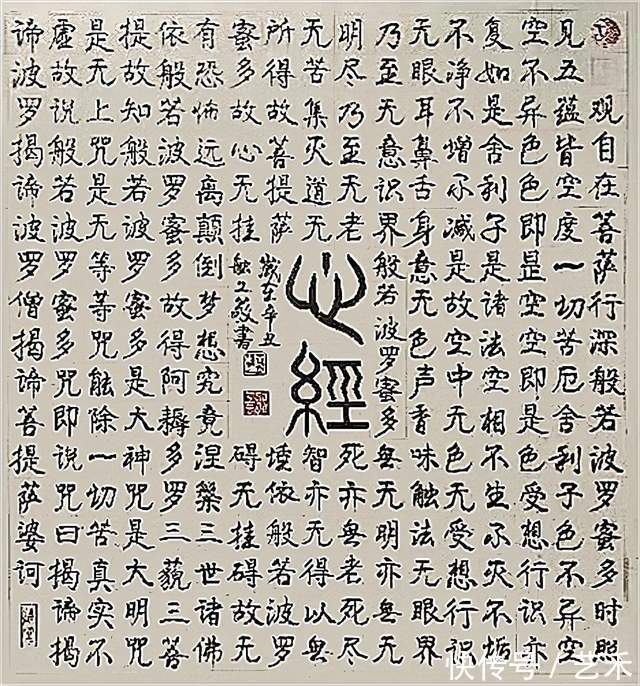 观自在菩萨行深般若波罗蜜多时照
见五蕴皆空度一切苦厄舍利子色不异空
空不异色色即是空空即是色受想行识亦
复如是舍利子是诸法空相不生不灭不垢
不净不增不减是故空中无色无受想行识
无眼耳鼻舌身意无色声香味触法无眼界
乃至无意识界般若波罗蜜多無无明亦無无
明尽乃至无老死亦無老死尽
无苦集灭道无智亦无得以無
所得故菩提萨埵依般若波罗
蜜多故心无挂碍无挂碍故无
有恐怖远离颠倒梦想究竟涅槃三世诸佛
依般若波罗蜜多故得阿耨多罗三藐三菩
提故知般若波罗蜜多是大神咒是大明咒
是无上咒是无等等咒能除一切苦真实不
虚故说般若波罗蜜多咒即说咒曰揭谛揭
谛波罗揭谛波罗僧揭谛菩提萨婆诃
心經
岁在辛丑
敬書
快传号/艺禾